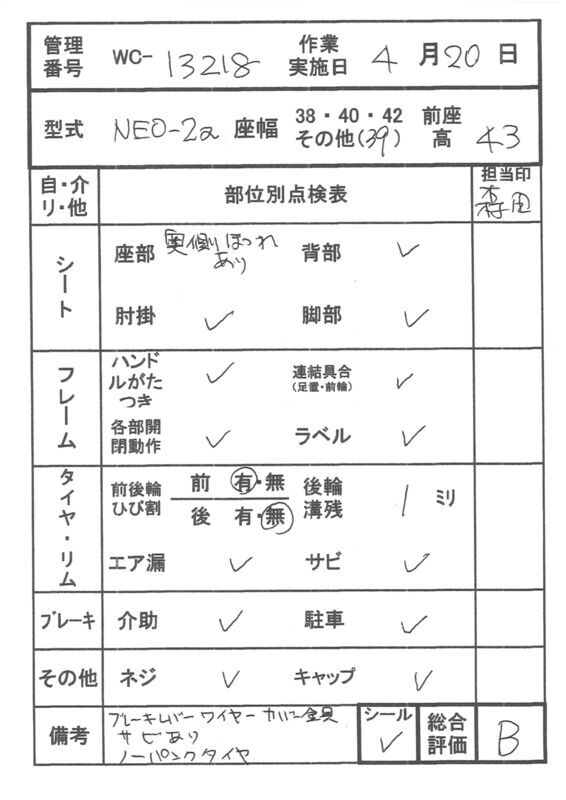 管理番号 WC-13218 作業実施日 4月20日
型式 NEO-2a 座幅 38・40・42 その他(39) 前座高 43
自・介リ・他 部位別点検表 担当印 森田
シート 座部 奥側ほつれあり 背部 ✓
肘掛 ✓ 脚部 ✓
フレーム ハンドルがたつき ✓ 連結具合(足置・前輪) ✓
各部開閉動作 ✓ ラベル ✓
タイヤ・リム 前後輪ひび割 前 有・無 後 有・無 後輪溝残 1 ミリ
エア漏 ✓ サビ ✓
ブレーキ 介助 ✓ 駐車 ✓
その他 ネジ ✓ キャップ ✓
備考 ブレーキレバーワイヤーカバー金具 シール ✓ 総合評価 B
サビあり
ノーパンクタイヤ